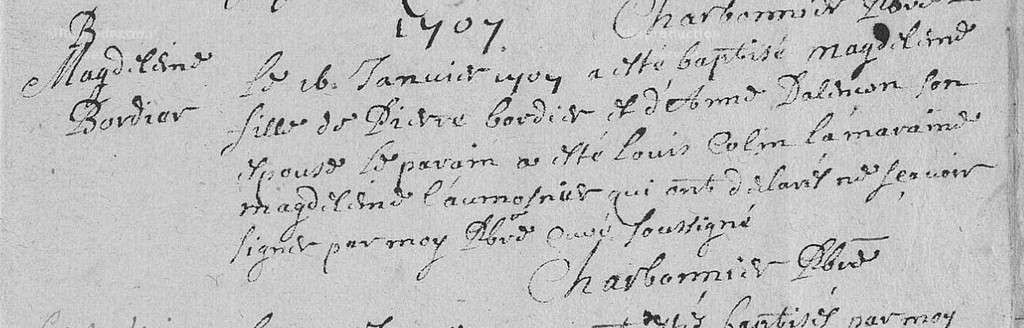 Charbonnier Pbre
1707
B
Magdeleine
Bordier
le 16. Janvier 1707 a esté baptisé magdeleine
fille de Pierre bordier et d'Anne Dalencon son
epouse le parain a esté Louis Colin la maraine
magdeleine l'aumosnier qui ont declarés ne sçavoir
signer par moy Pbre Curé soussigné
Charbonnier Pbre
esté baptisés par moy